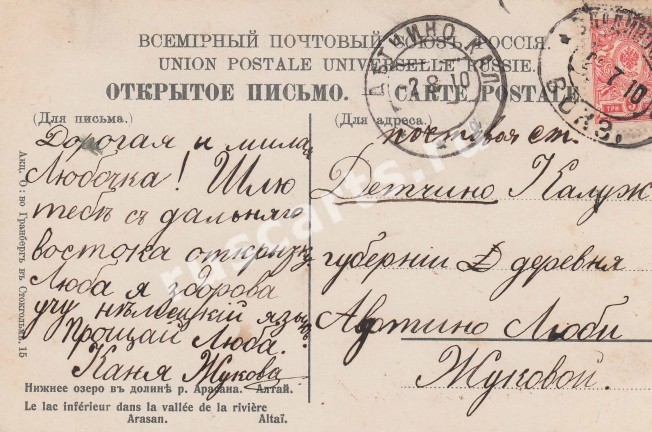 ВСЕМІРНЫЙ ПОЧТОВЫЙ СОЮЗЪ РОССІЯ.
UNION POSTALE UNIVERSELLE RUSSIE.
ОТКРЫТОЕ ПИСЬМО. CARTE POSTALE
ДЕТЧИНО КАЛ
2 8 10
7 10
ВОКЗ.
ТРИ
(Для письма.)
Дорогая и мила
Любочка! Шлю
тебѣ съ дальняго
востока открытку
Люба я здорова
учу нѣмецкій языкъ.
Прощай Люба.
Каня Жукова
(Для адреса.)
почтовая ст.
Детчино Калуж
губерніи Д деревня
Автино Любѣ
Жуковой.
Акц. О-во Гранбергъ въ Стокгольмѣ. 15
Нижнее озеро въ долинѣ р. Арасана. Алтай.
Le lac inférieur dans la vallée de la rivière
Arasan. Altaï.
ruscarts.ru